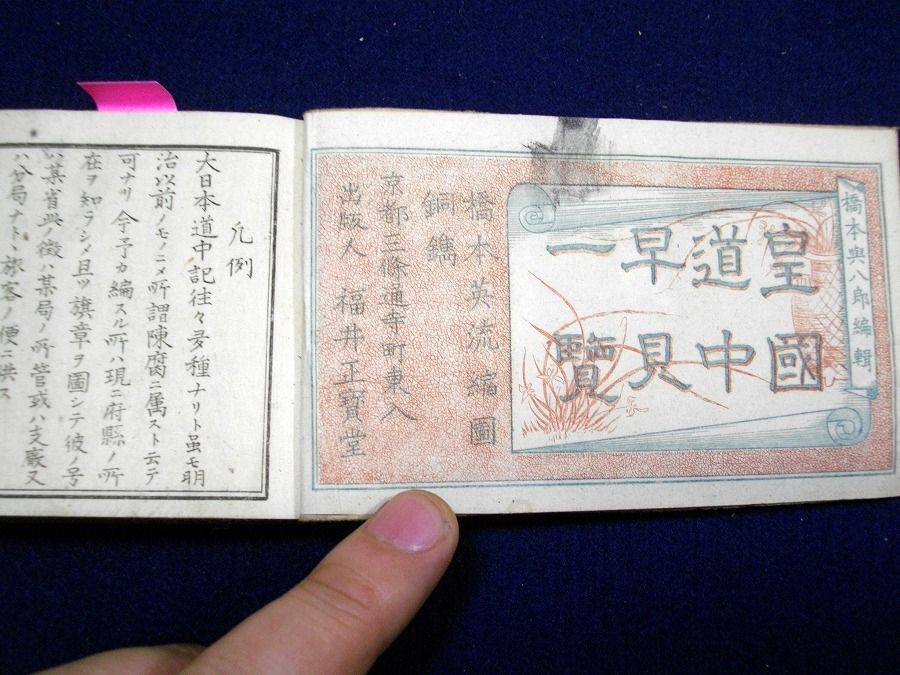 橋本與八郎編輯
皇國
道中
早見
一覽
橋本英流縮圖
銅鐫
京都三條通寺町東入
出版人 福井正寶堂
凡例
大日本道中記往々多種ナリト虽モ明
治以前ノモノニ〆所謂陳腐ニ属スト云テ
可ナリ今予カ編スル所ハ現ニ府縣ノ所
在ヲ知ラシメ且ツ旗章ヲ圖シテ彼ノ号
ハ某省ノ徴ハ某局ノ所管或ハ支廠又
ハ分局ナト、旅客ノ便ニ供ス